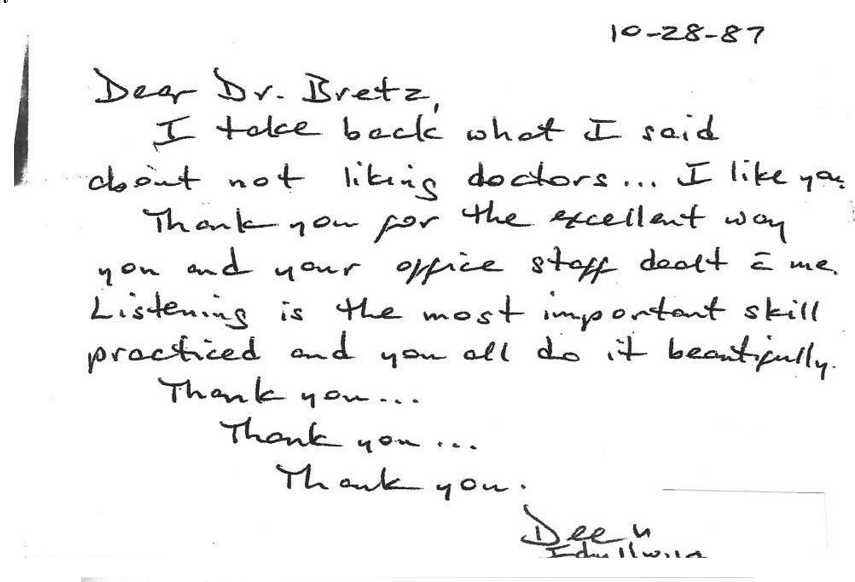 10-28-87
Dear Dr. Bretz,
I take back what I said
about not liking doctors... I like you.
Thank you for the excellent way
you and your office staff dealt c̄ me.
Listening is the most important skill
practiced and you all do it beautifully.
Thank you...
Thank you...
Thank you.